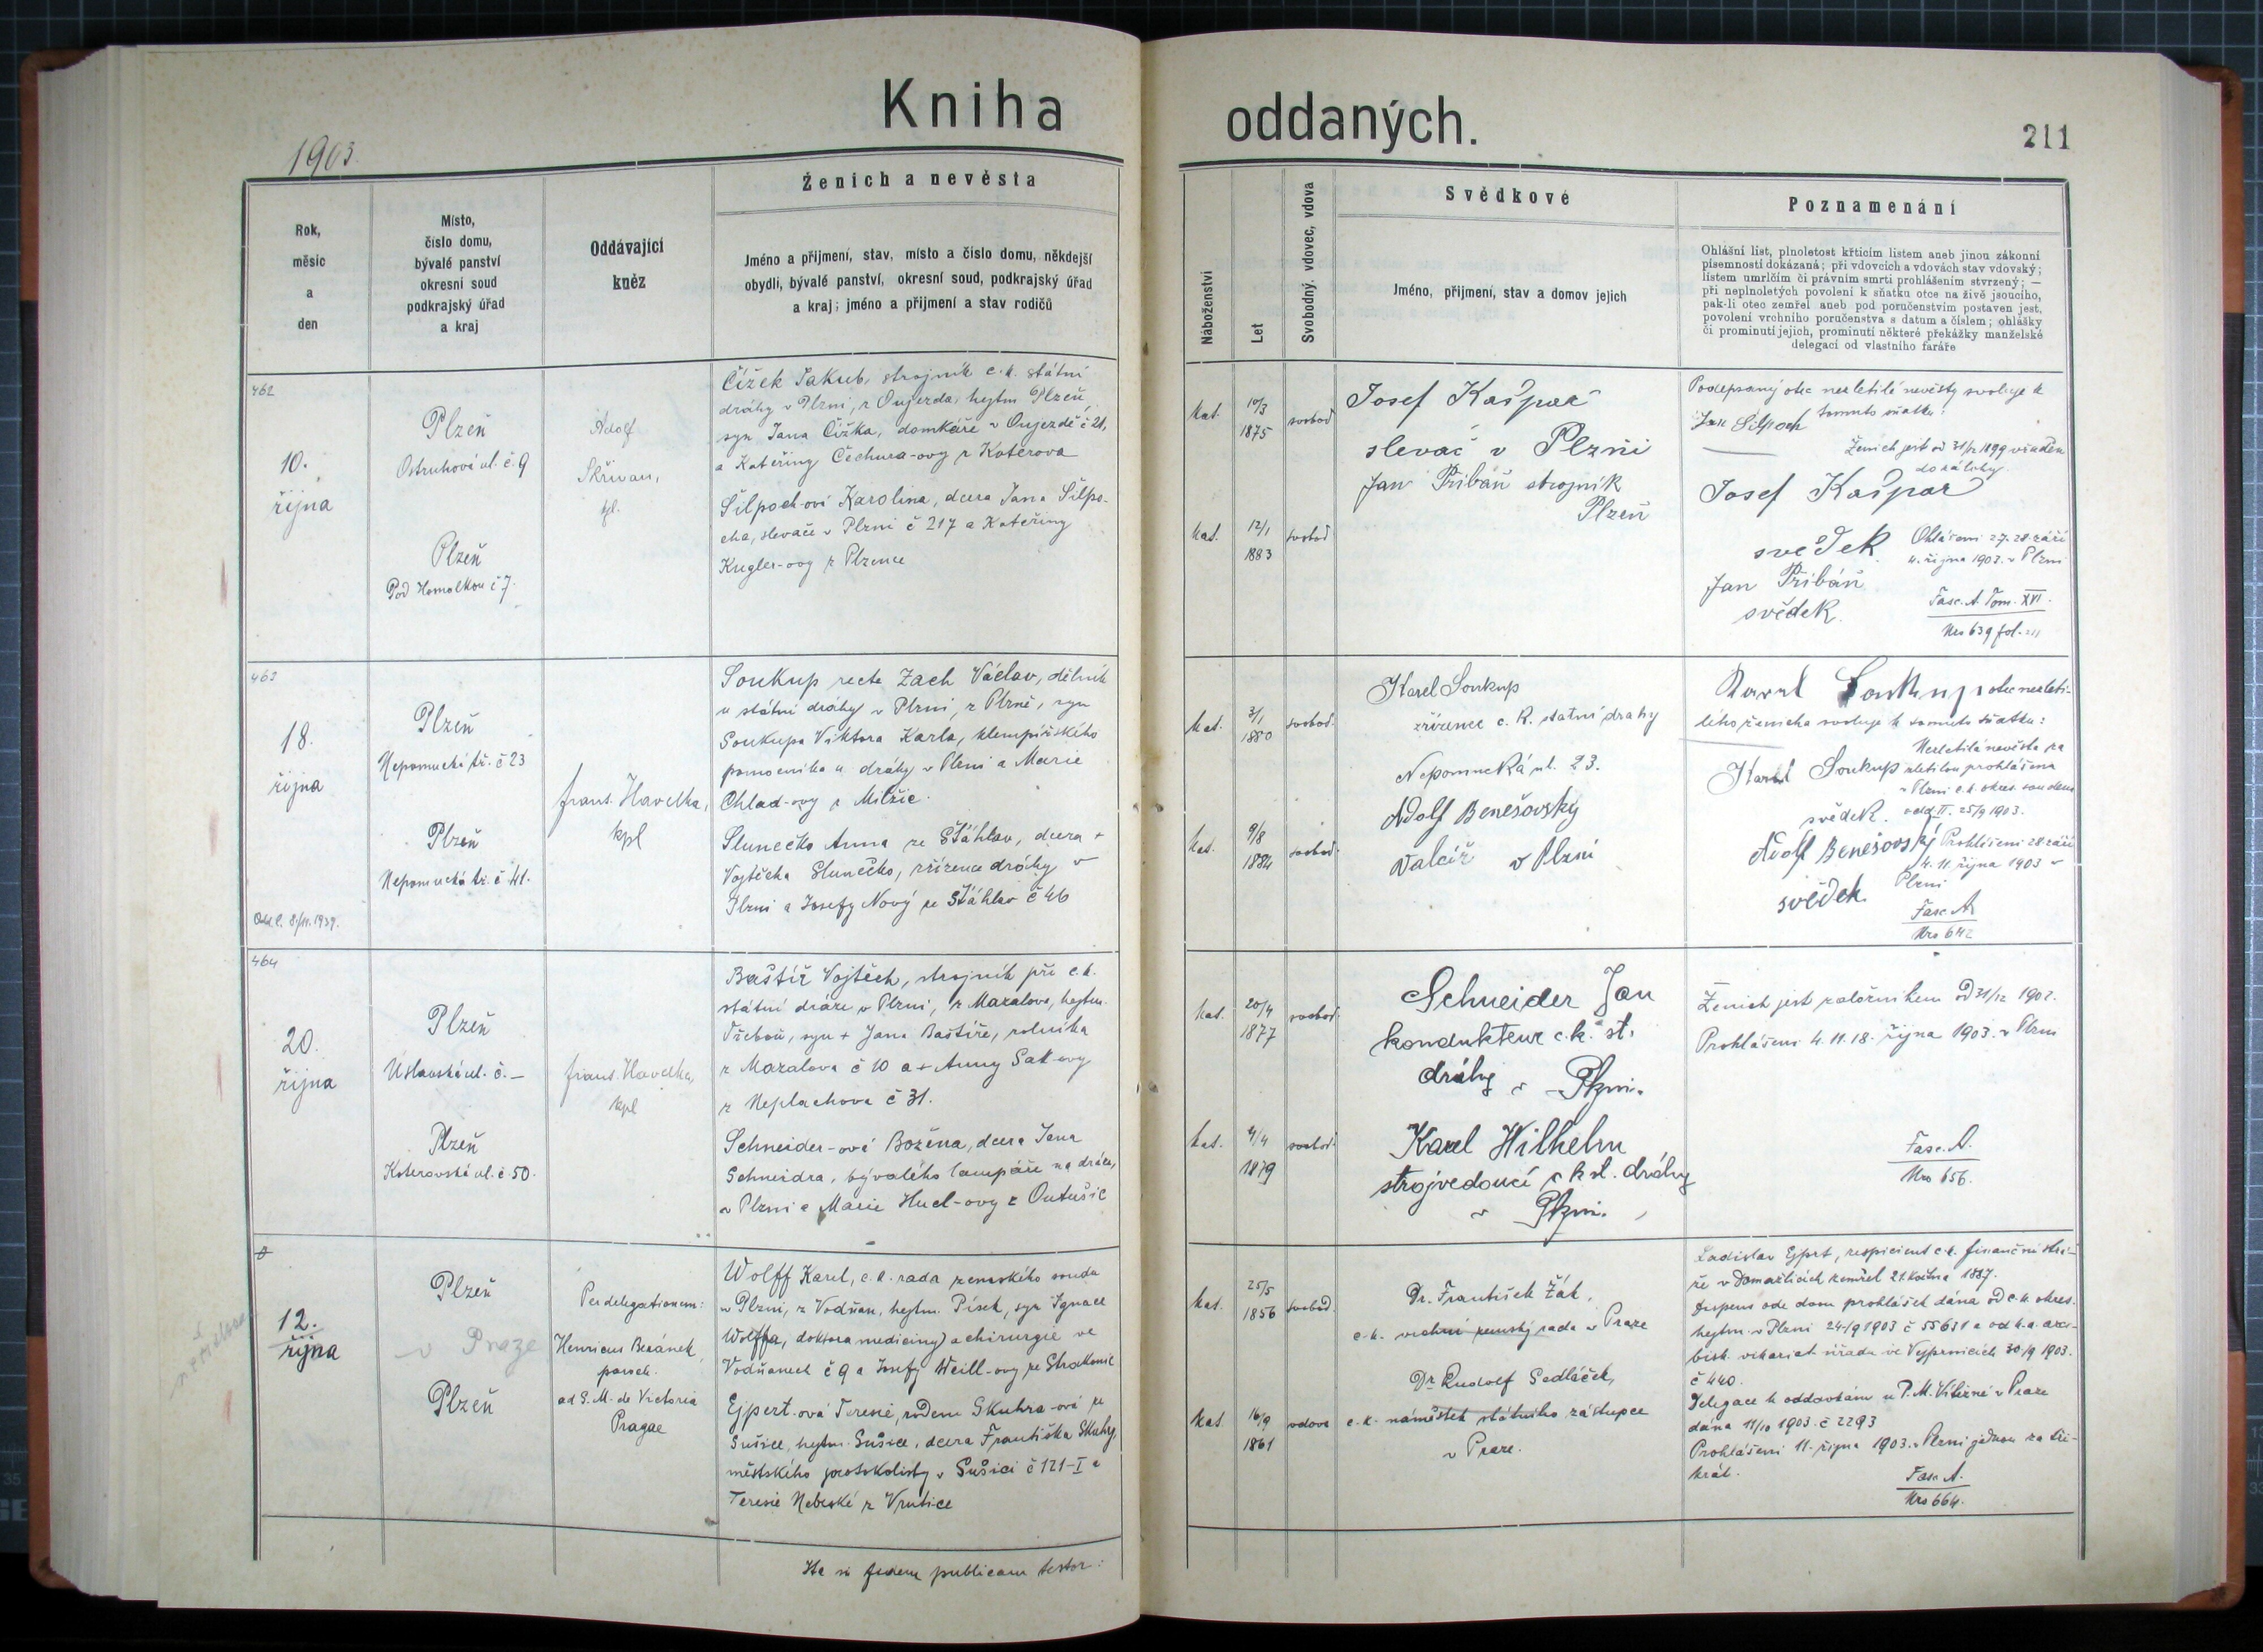 Kniha oddaných.
211
1903.
Rok,
měsíc
a
den
Místo,
číslo domu,
bývalé panství
okresní soud
podkrajský úřad
a kraj
Oddávající
kněz
Ženich a nevěsta
Jméno a přijmení, stav, místo a číslo domu, někdejší
obydlí, bývalé panství, okresní soud, podkrajský úřad
a kraj; jméno a přijmení a stav rodičů
Náboženství
Let
Svobodný, vdovec, vdova
Svědkové
Jméno, přijmení, stav a domov jejich
Poznamenání
Ohlášní list, plnoletost křticím listem aneb jinou zákonní
písemností dokázaná; při vdovcích a vdovách stav vdovský;
listem umrlčím či právním smrti prohlášením stvrzený; —
při neplnoletých povolení k sňatku otce na živě jsoucího,
pak-li otec zemřel aneb pod poručenstvím postaven jest,
povolení vrchního poručenstva s datum a číslem; ohlášky
či prominutí jejich, prominutí některé překážky manželské
delegací od vlastního faráře
462
10.
října
Plzeň
Ostruhová ul. č. 9
Plzeň
Pod Homolkou č 7.
Adolf
Skřivan,
kpl.
Čížek Jakub, strojník c. k. státní
dráhy v Plzni, z Oujezda, hejtm Plzeň,
syn Jana Čížka, domkáře v Oujezdě č 21,
a Kateřiny Čechura-ovy z Koterova
Šilpoch-ová Karolina, dcera Jana Šilpo-
cha, slevače v Plzni č 217 a Kateřiny
Kugler-ovy z Plzence
kat. 10/3 1875 svobod
kat. 12/1 1883 svobod
Josef Kašpar
slevač v Plzni
Jan Přibáň strojník
Plzeň
Podepsaný otec nezletilé nevěsty svoluje k
tomuto sňatku:
Jan Šilpoch
Ženich jest od 31/12 1899 vřaděn
do zálohy.
Josef Kašpar
svědek
Ohlášeni 27. 28 září
4. října 1903. v Plzni
Jan Přibáň
svědek.
Fasc. A. Tom. XVI.
Nro 639 fol.
463
18.
října
Odd. l. 8/11. 1939.
Plzeň
Nepomucká tř. č 23
Plzeň
Nepomucká tř. č 41.
frant. Havelka,
kpl
Soukup recte Zach Václav, dělník
u státní dráhy v Plzni, z Plzně, syn
Soukupa Viktora Karla, klempířského
pomocníka u dráhy v Plzni a Marie
Chlad-ovy z Milžic.
Slunečko Anna ze Šťáhlav, dcera +
Vojtěcha Slunečko, zřízence dráhy v
Plzni a Josefy Nový ze Šťáhlav č 46
kat. 3/1 1880 svobod.
kat. 9/8 1884 svobod.
Karel Soukup
zřízenec c. k. statní drahy
Nepomucká ul. 23.
Adolf Benešovský
Valcíř v Plzni
Karel Soukup otec nezleti-
lého ženicha svoluje k tomuto sňatku:
Nezletilá nevěsta za
zletilou prohlášena
v Plzni c. k. okres. soudem
odd. II. 25/9 1903.
Karel Soukup
svědek.
Adolf Benešovský
svědek
Prohlášeni 28 září
4. 11. října 1903 v
Plzni
Fasc A.
Nro 642
464
20.
října
Plzeň
Úslavská ul. č. —
Plzeň
Koterovská ul. č. 50.
frant. Havelka,
kpl
Baštíř Vojtěch, strojník při c. k.
státní dráze v Plzni, z Mazalova, hejtm.
Třeboň, syn + Jana Baštíře, rolníka
z Mazalova č 10 a + Anny Sak-ovy
z Neplachova č 31.
Schneider-ová Božena, dcera Jana
Schneidra, bývalého lampáře na dráze,
v Plzni a Marie Hucl-ovy z Outušic
kat. 20/4 1877 svobod.
kat. 4/4 1879 svobod.
Schneider Jan
kondukteur c. k. st.
dráhy v Plzni.
Karel Wilhelm
strojvedoucí c k st. dráhy
v Plzni.
Ženich jest záložníkem od 31/12 1902.
Prohlášeni 4. 11. 18. října 1903. v Plzni
Fasc. A.
Nro 656.
0
12.
října
Plzeň
v Praze
Plzeň
Per delegationem:
Henricus Beránek
paroch.
ad S. M. de Victoria
Pragae
Wolff Karel, c. k. rada zemského soudu
v Plzni, z Vodňan, hejtm. Písek, syn Ignace
Wolffa, doktora medicíny a chirurgie ve
Vodňanech č 9 a Josefy Weill-ovy ze Strakonic
Ejpert-ová Teresie, rodem Skuhra-ová ze
Sušice, hejtm. Sušice, dcera Františka Skuhry,
městského protokolisty v Sušici č 121-I a
Teresie Nebeské z Vrutice
kat. 25/5 1856 svobod.
kat 16/9 1861 vdova
Dr. František Žák,
c. k. vrchní zemský rada v Praze
Dr Rudolf Sedláček,
c. k. náměstek státního zástupce
v Praze.
Ladislav Ejpert, respicient c. k. finanční strá-
že v Domažlicích zemřel 21. května 1887.
Dispens ode dvou prohlášek dána od c. k. okres.
hejtm. v Plzni 24/9 1903 č 55631 a od k. a. arci-
bisk. vikariát. úřadu ve Vejprnicích 30/9 1903.
č 440.
Delegace k oddavkám u P. M. Vítězné v Praze
dána 11/10 1903. č 2293
Prohlášeni 11. října 1903. v Plzni jednou za tři-
krát.
Fasc A.
Nro 664.
publicam testor: